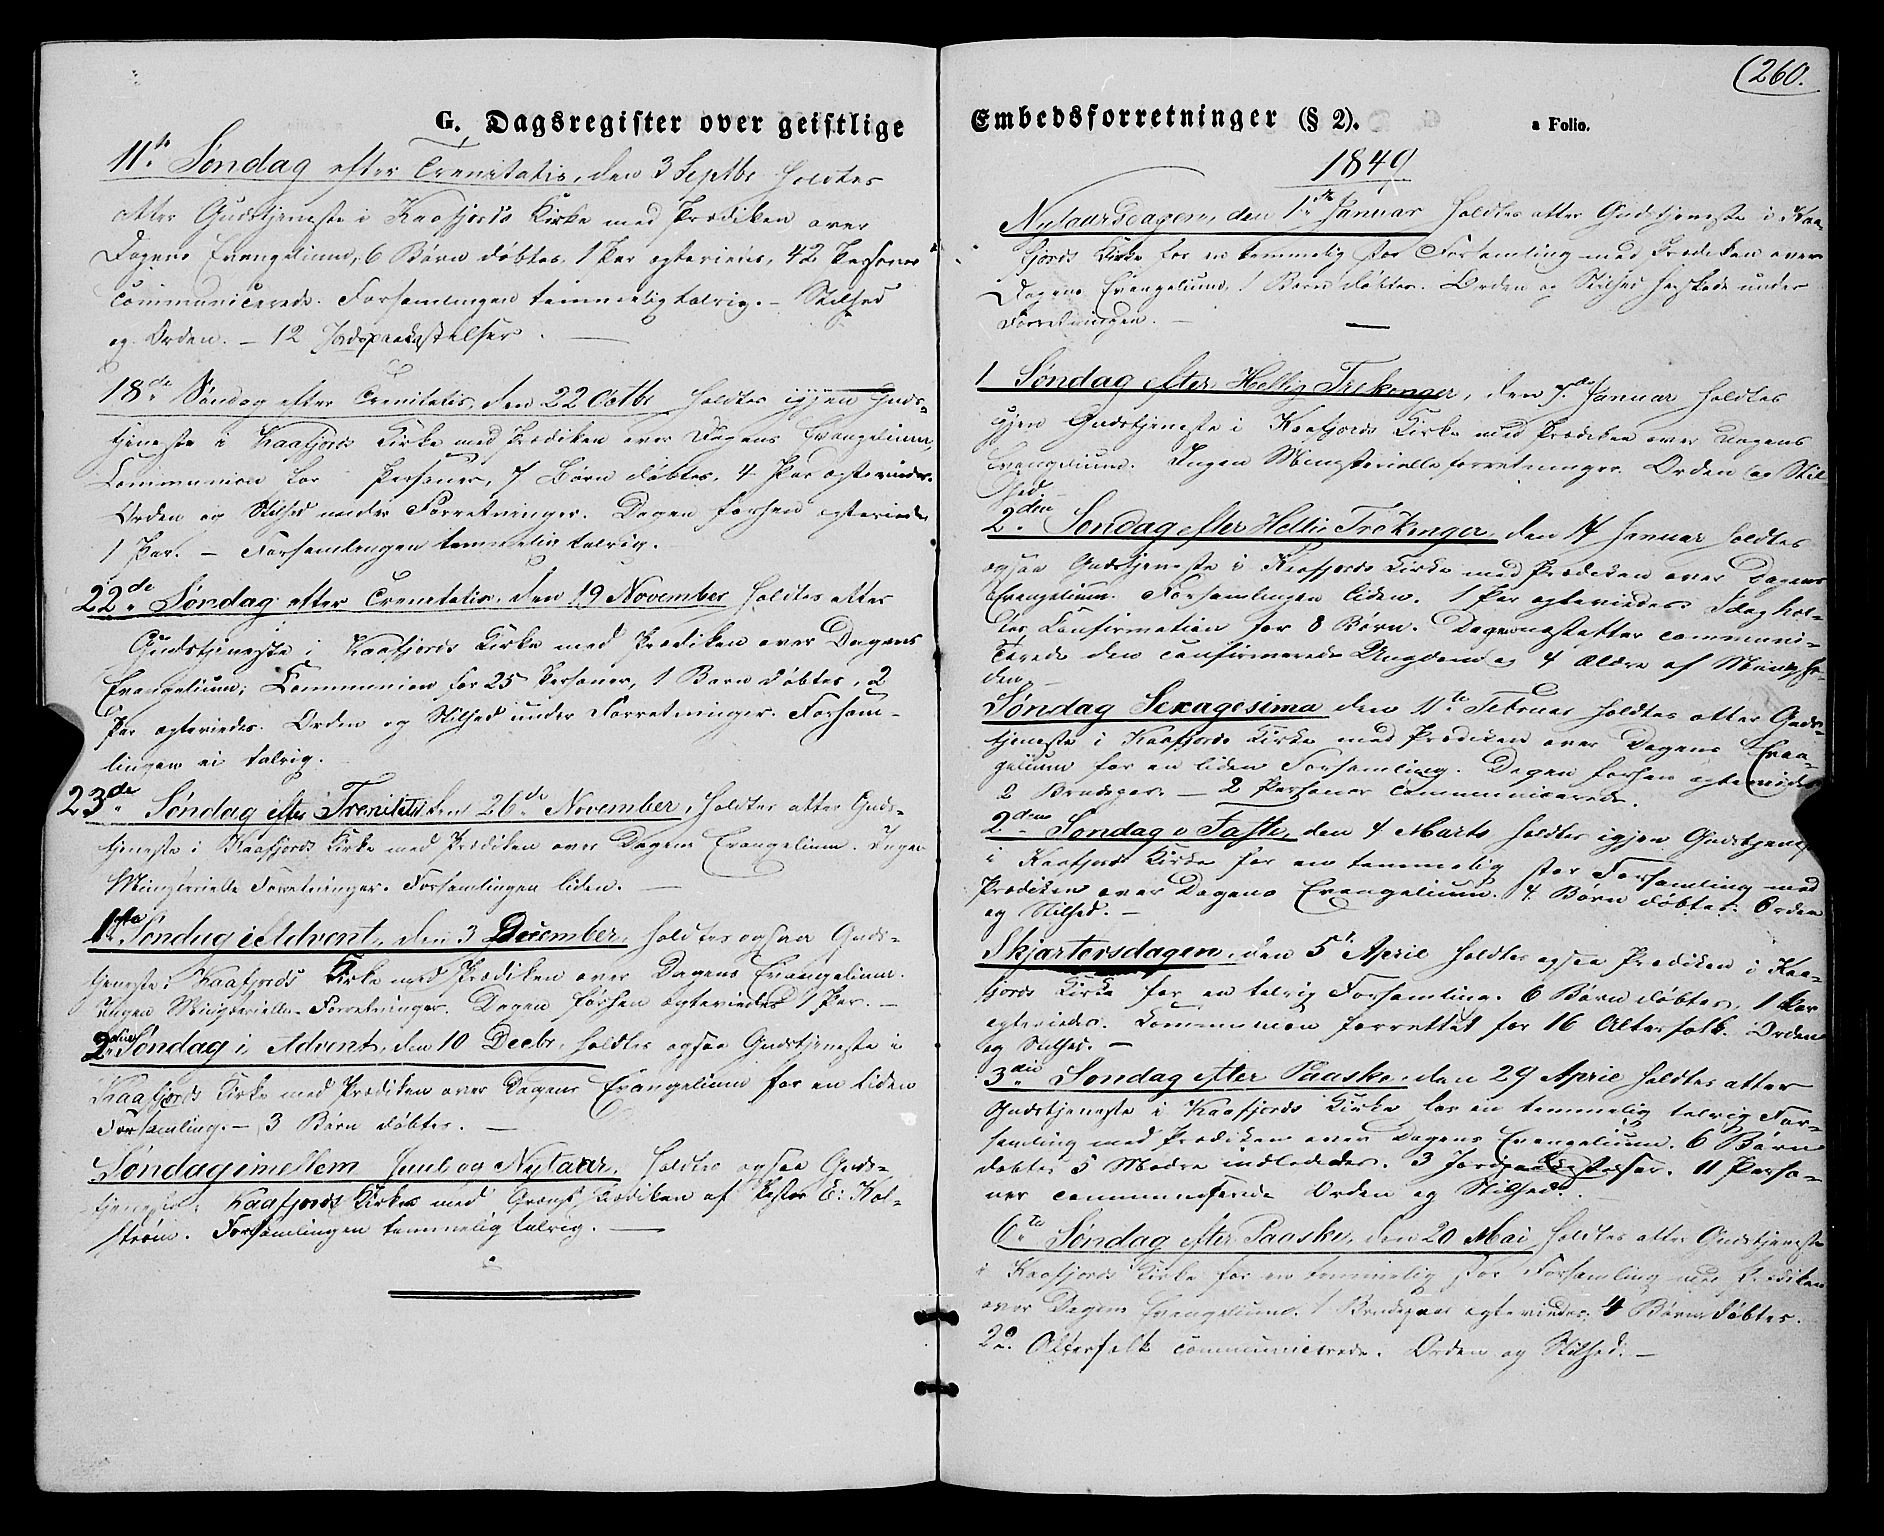 (260.
G. Dagsregister over geistlige Embedsforretninger (§ 2). a Folio.
11te Søndag efter Trenitatis, den 3 Septbr holdtes
atter Gudstjeneste i Kaafjords Kirke med Prædiken over
Dagens Evangelium, 6 Børn døbtes, 1 Par egteviedes, 42 Personer
communicerede. Forsamlingen temmelig talrig. – Stilhed
og Orden. – 12 Jordpaakastelser. —
18de Søndag efter Trenitatis, den 22 Octbr holdtes igjen Guds-
tjeneste i Kaafjords Kirke med Prædiken over Dagens Evangelium,
Communion for Personer, 7 Børn døbtes, 4 Par egteviedes.
Orden og Stilhed under Forretninger. Dagen forhen egteviedes
1 Par. – Forsamlingen temmelig talrig.
22de Søndag efter Trenitatis, den 19 November holdtes atter
Gudstjeneste i Kaafjords Kirke med Prædiken over Dagens
Evangelium; Communion for 25 Personer, 1 Barn døbtes, 2
Par egteviedes. Orden og Stilhed under Forretninger. Forsam-
lingen ei talrig.
23de Søndag efter Trenitatis den 26de November, holdtes atter Guds-
tjeneste i Kaafjords Kirke med Prædiken over Dagens Evangelium. Ingen
Ministerielle Forretninger. Forsamlingen liden. —
1ste Søndag i Advent, den 3 December, holdtes ogsaa Guds-
tjeneste i Kaafjords Kirke med Prædiken over Dagens Evangelium.
Ingen Ministerielle Forretninger. Dagen forhen egteviedes 1 Par. –
2den Søndag i Advent, den 10 Decbr, holdtes ogsaa Gudstjeneste i
Kaafjords Kirke med Prædiken over Dagens Evangelium for en liden
Forsamling. – 3 Børn døbtes. —
Søndag imellem Juul og Nytaar, holdtes ogsaa Guds-
tjeneste i Kaafjords Kirke med Prædiken af Pastor E: Hol-
strøm. Forsamlingen temmelig talrig. —
1849
Nytaarsdagen, den 1ste Januar holdtes atter Gudstjeneste i Kaa-
fjords Kirke for en temmelig stor Forsamling med Prædiken over
Dagens Evangelium, 1 Barn døbtes. Orden og Stilhed herskede under
Forretningen. —
1 Søndag efter Hellig Trekonger, den 7de Januar holdtes
igjen Gudstjeneste i Kaafjords Kirke med Prædiken over Dagens
Evangelium. Ingen Ministerielle forretninger. Orden og Stil
hed.
2den Søndag efter Hellig Trekonger, den 14 Januar holdtes
ogsaa Gudstjeneste i Kaafjords Kirke med Prædiken over Dagens
Evangelium. Forsamlingen liden. 1 Par egteviedes. Idag hol-
tes Confirmation for 8 Børn. Dagen næstefter communi-
cerede den confirmerede Ungdom og 4 Ældre af Menighe-
den. –
Søndag Sexagesima den 11te Februar holdtes atter Guds-
tjeneste i Kaafjords Kirke med Prædiken over Dagens Evan-
gelium for en liden Forsamling. Dagen forhen egteviedes
2 Brudepar. – 2 Personer communicerede.
2den Søndag i Faste, den 4 Marts holdtes igjen Gudstjeneste
i Kaafjords Kirke for en temmelig stor Forsamling med
Prædiken over Dagens Evangelium. 4 Børn døbtes. Orden
og Stilhed. –
Skjærtorsdagen, den 5te April holdtes ogsaa Prædiken i Kaa-
fjords Kirke for en talrig Forsamling. 6 Børn døbtes, 1 Par
egteviedes. Communion forrettet for 16 Alterfolk. Orden
og Stilhed. –
3die Søndag efter Paaske, den 29 April holdtes atter
Gudstjeneste i Kaafjords Kirke for en temmelig talrig For-
samling med Prædiken over Dagens Evangelium. 6 Børn
døbtes 5 Mødre indlededes. 3 Jordpaakastelser. 11 Perso-
ner communicerede Orden og Stilhed.
6te Søndag efter Paaske, den 20 Mai holdtes atter Gudstjeneste
i Kaafjords Kirke for en temmelig stor Forsamling med Prædiken
over Dagens Evangelium. 1 Brudepar egteviedes. 4 Børn døbtes.
22 Alterfolk communicerede. Orden og Stilhed. –